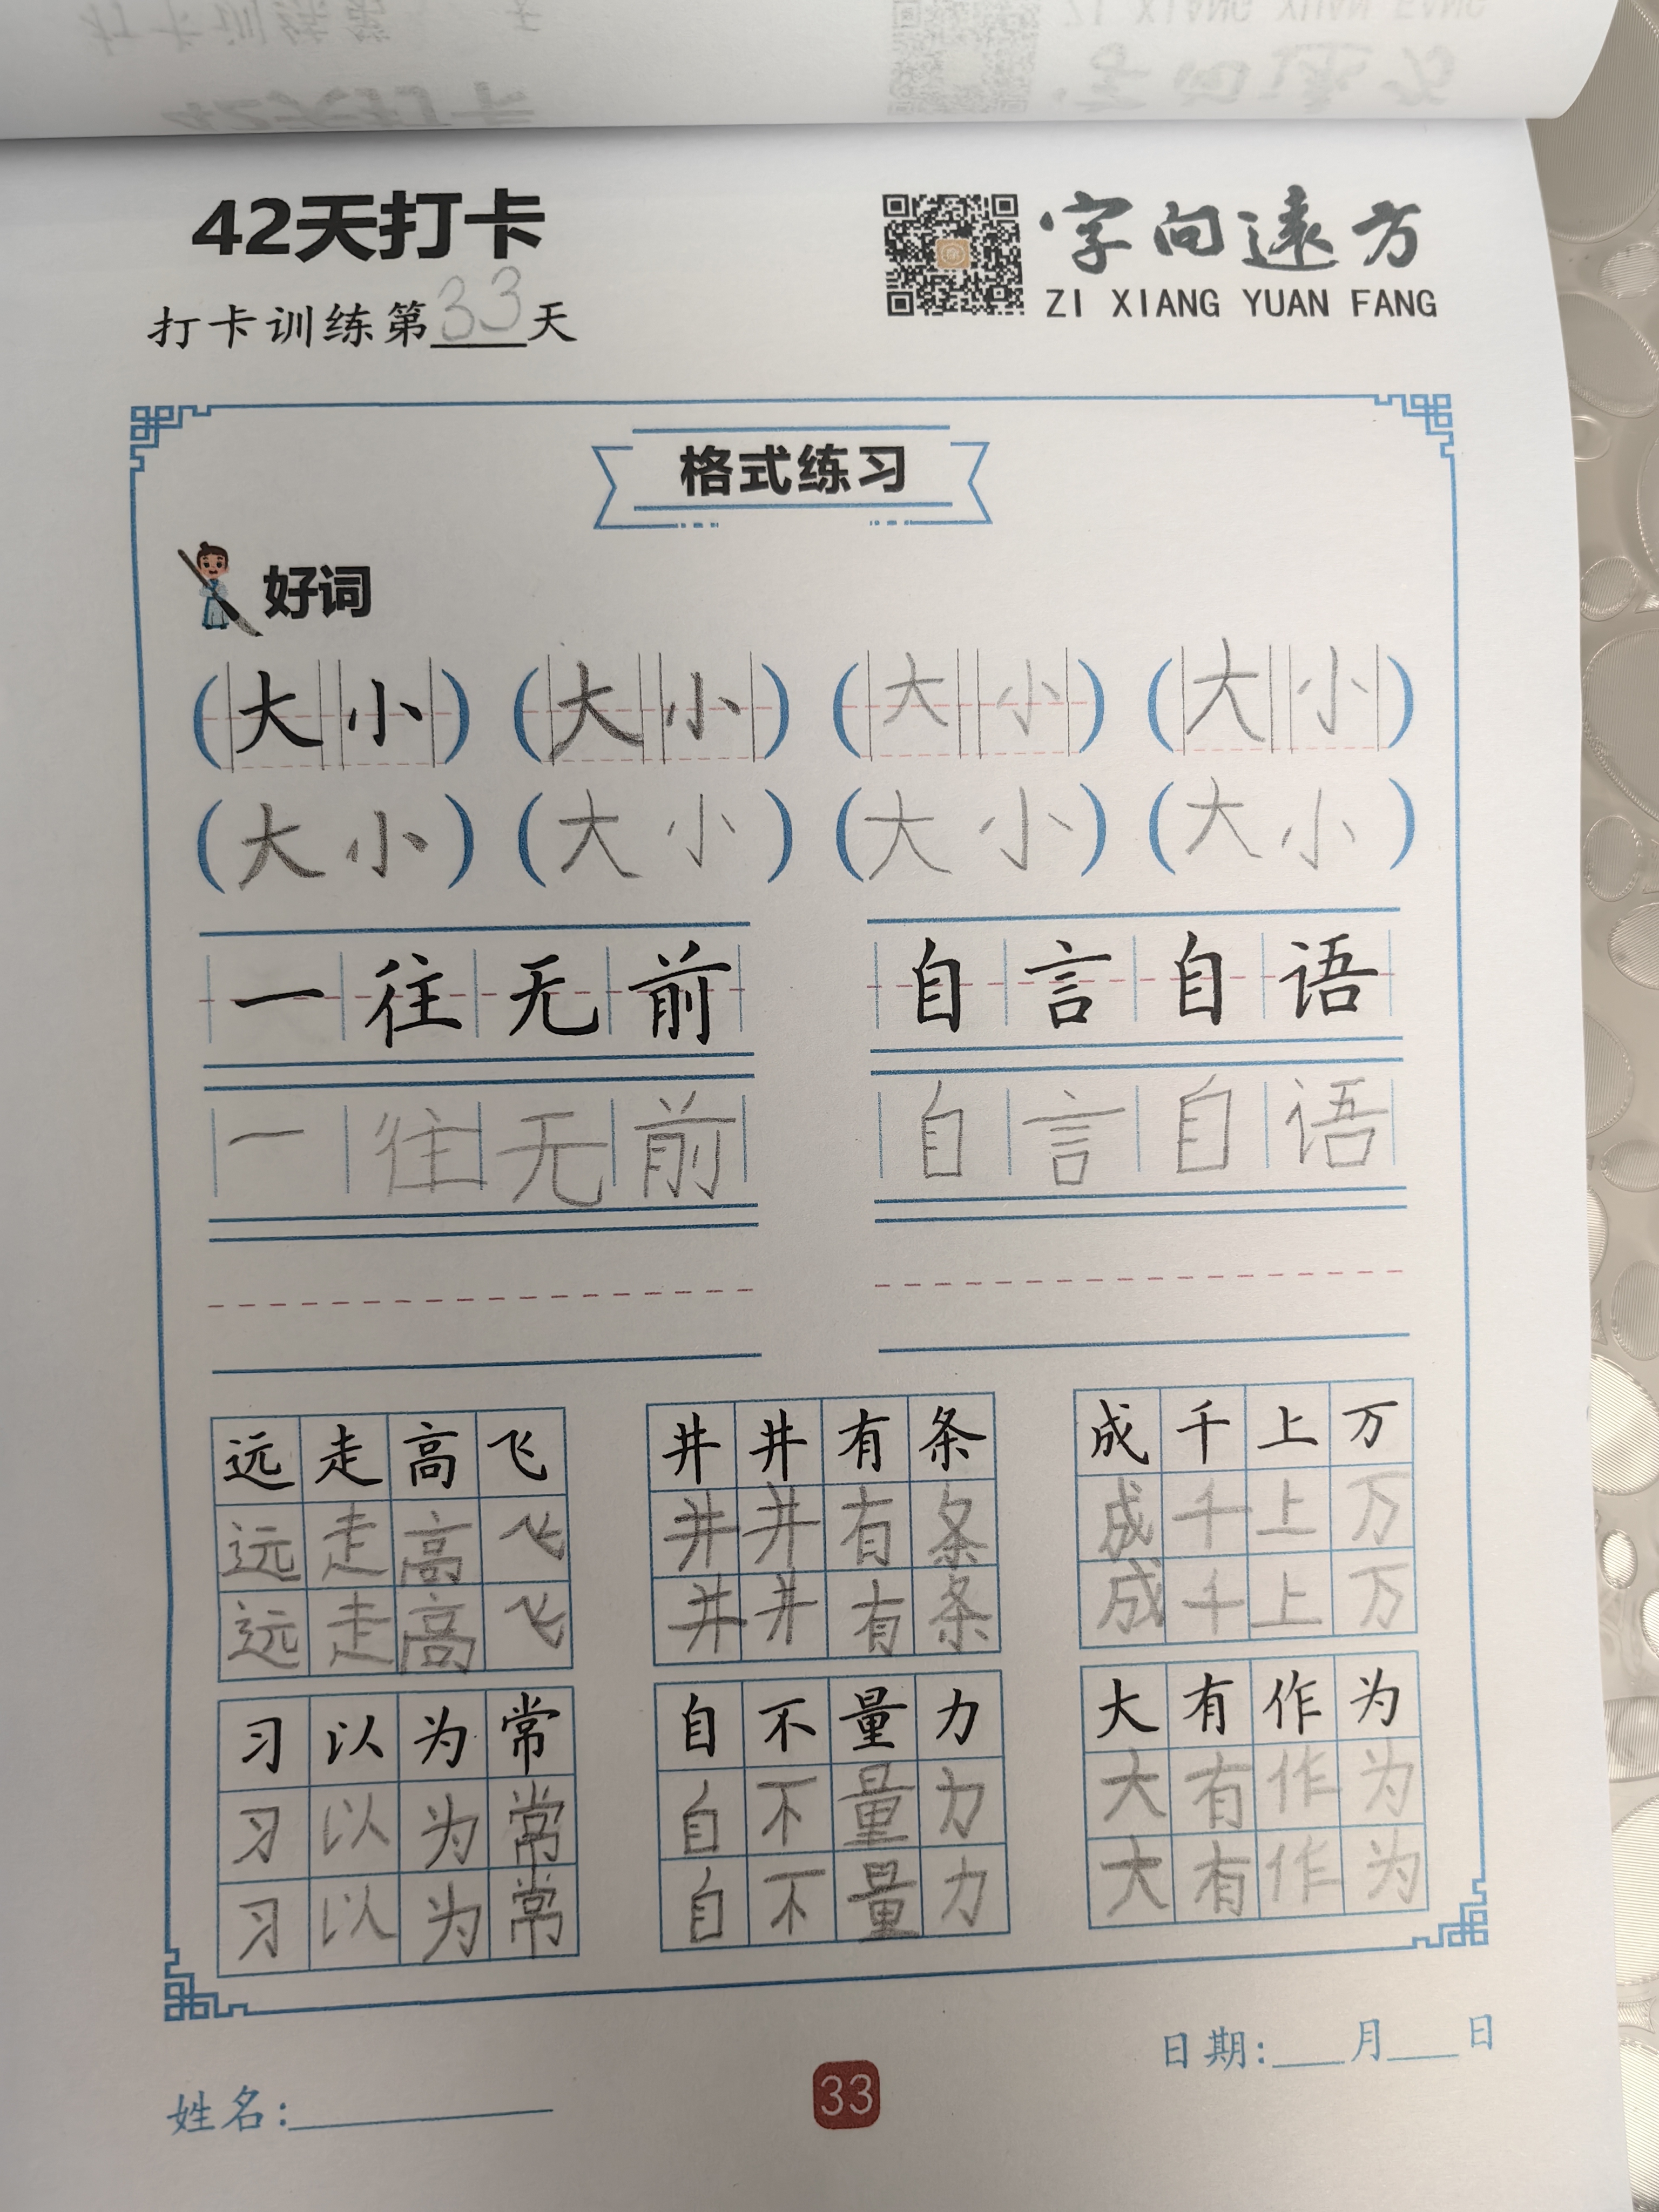 42天打卡
字向遠方
ZI XIANG YUAN FANG
打卡训练第33天
格式练习
好词
(大小) (大小) (大小) (大小)
(大小) (大小) (大小) (大小)
一往无前 自言自语
一往无前 自言自语
远走高飞 井井有条 成千上万
远走高飞 井井有条 成千上万
远走高飞 井井有条 成千上万
习以为常 自不量力 大有作为
习以为常 自不量力 大有作为
习以为常 自不量力 大有作为
日期:___月___日
姓名:
33